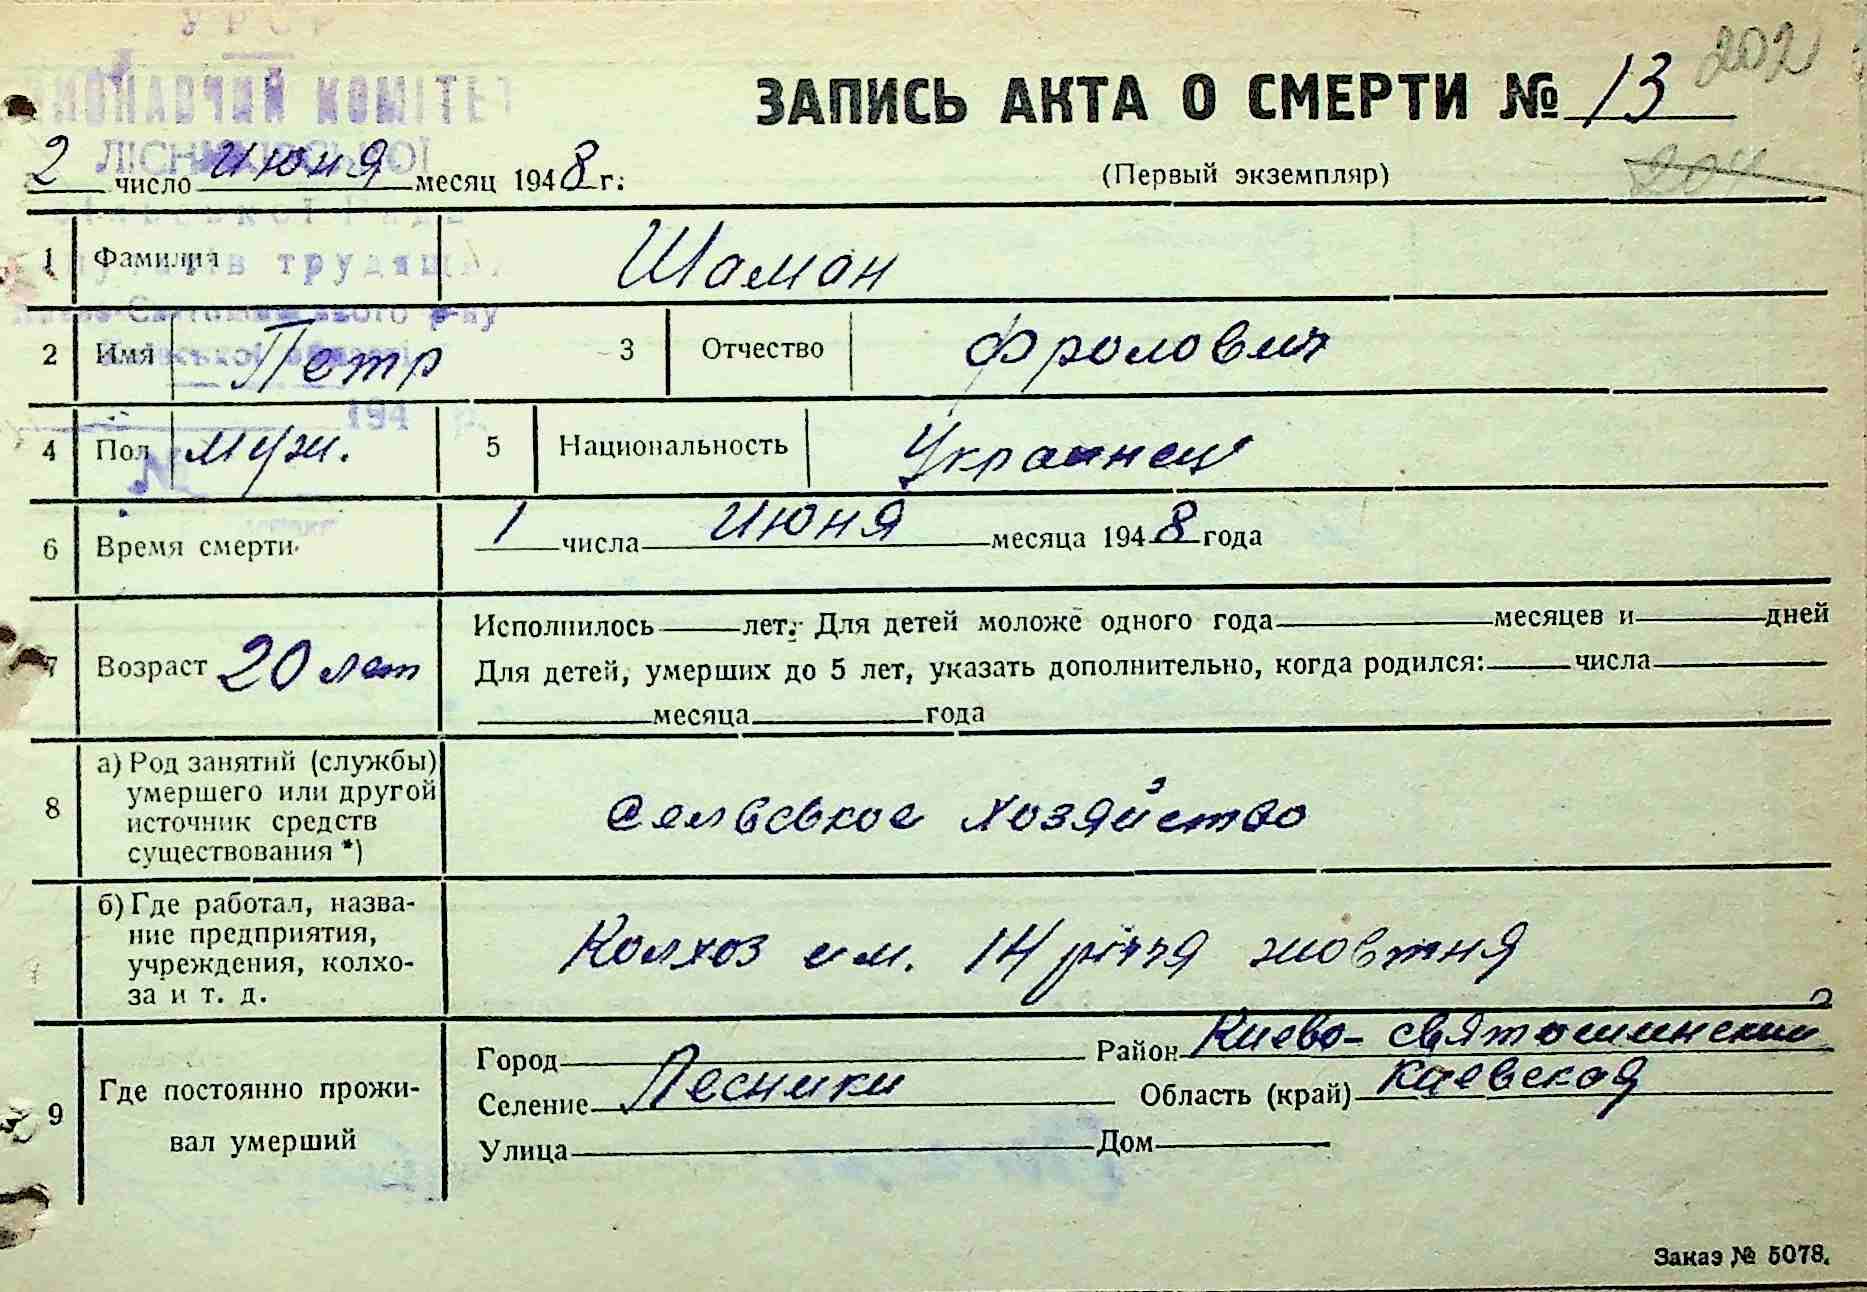 УРСР
ВИКОНАВЧИЙ КОМІТЕТ
ЛІСНИКІВСЬКОЇ
сільської Ради
депутатів трудящих
Києво-Святошинського р-ну
Київської області
194 р.
№
ЗАПИСЬ АКТА О СМЕРТИ № 13
202
204
2 число июня месяц 1948 г.
(Первый экземпляр)
1 Фамилия Шаман
2 Имя Петр 3 Отчество Фролович
4 Пол муж. 5 Национальность Украинец
6 Время смерти 1 числа июня месяца 1948 года
7 Возраст 20 лет
Исполнилось лет. Для детей моложе одного года месяцев и дней
Для детей, умерших до 5 лет, указать дополнительно, когда родился: числа
месяца года
8 а) Род занятий (службы)
умершего или другой
источник средств
существования *)
сельське хозяйство
б) Где работал, назва-
ние предприятия,
учреждения, колхо-
за и т. д.
Колхоз им. 14 річчя жовтня
9 Где постоянно прожи-
вал умерший
Город Район Киево-Святошинский
Селение Лесники Область (край) Киевская
Улица Дом
Заказ № 5078.